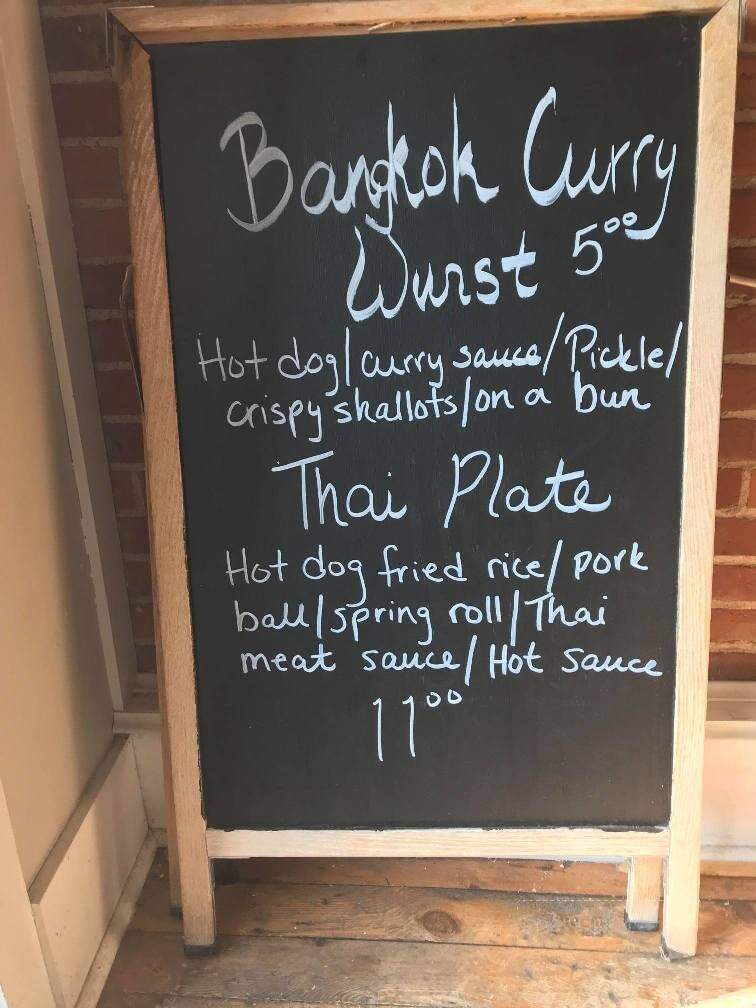 Bangkok Curry
Wurst 5⁰⁰
Hot dog/curry sauce/Pickle/
crispy shallots/on a bun
Thai Plate
Hot dog fried rice/pork
ball/spring roll/Thai
meat sauce/Hot Sauce
11⁰⁰